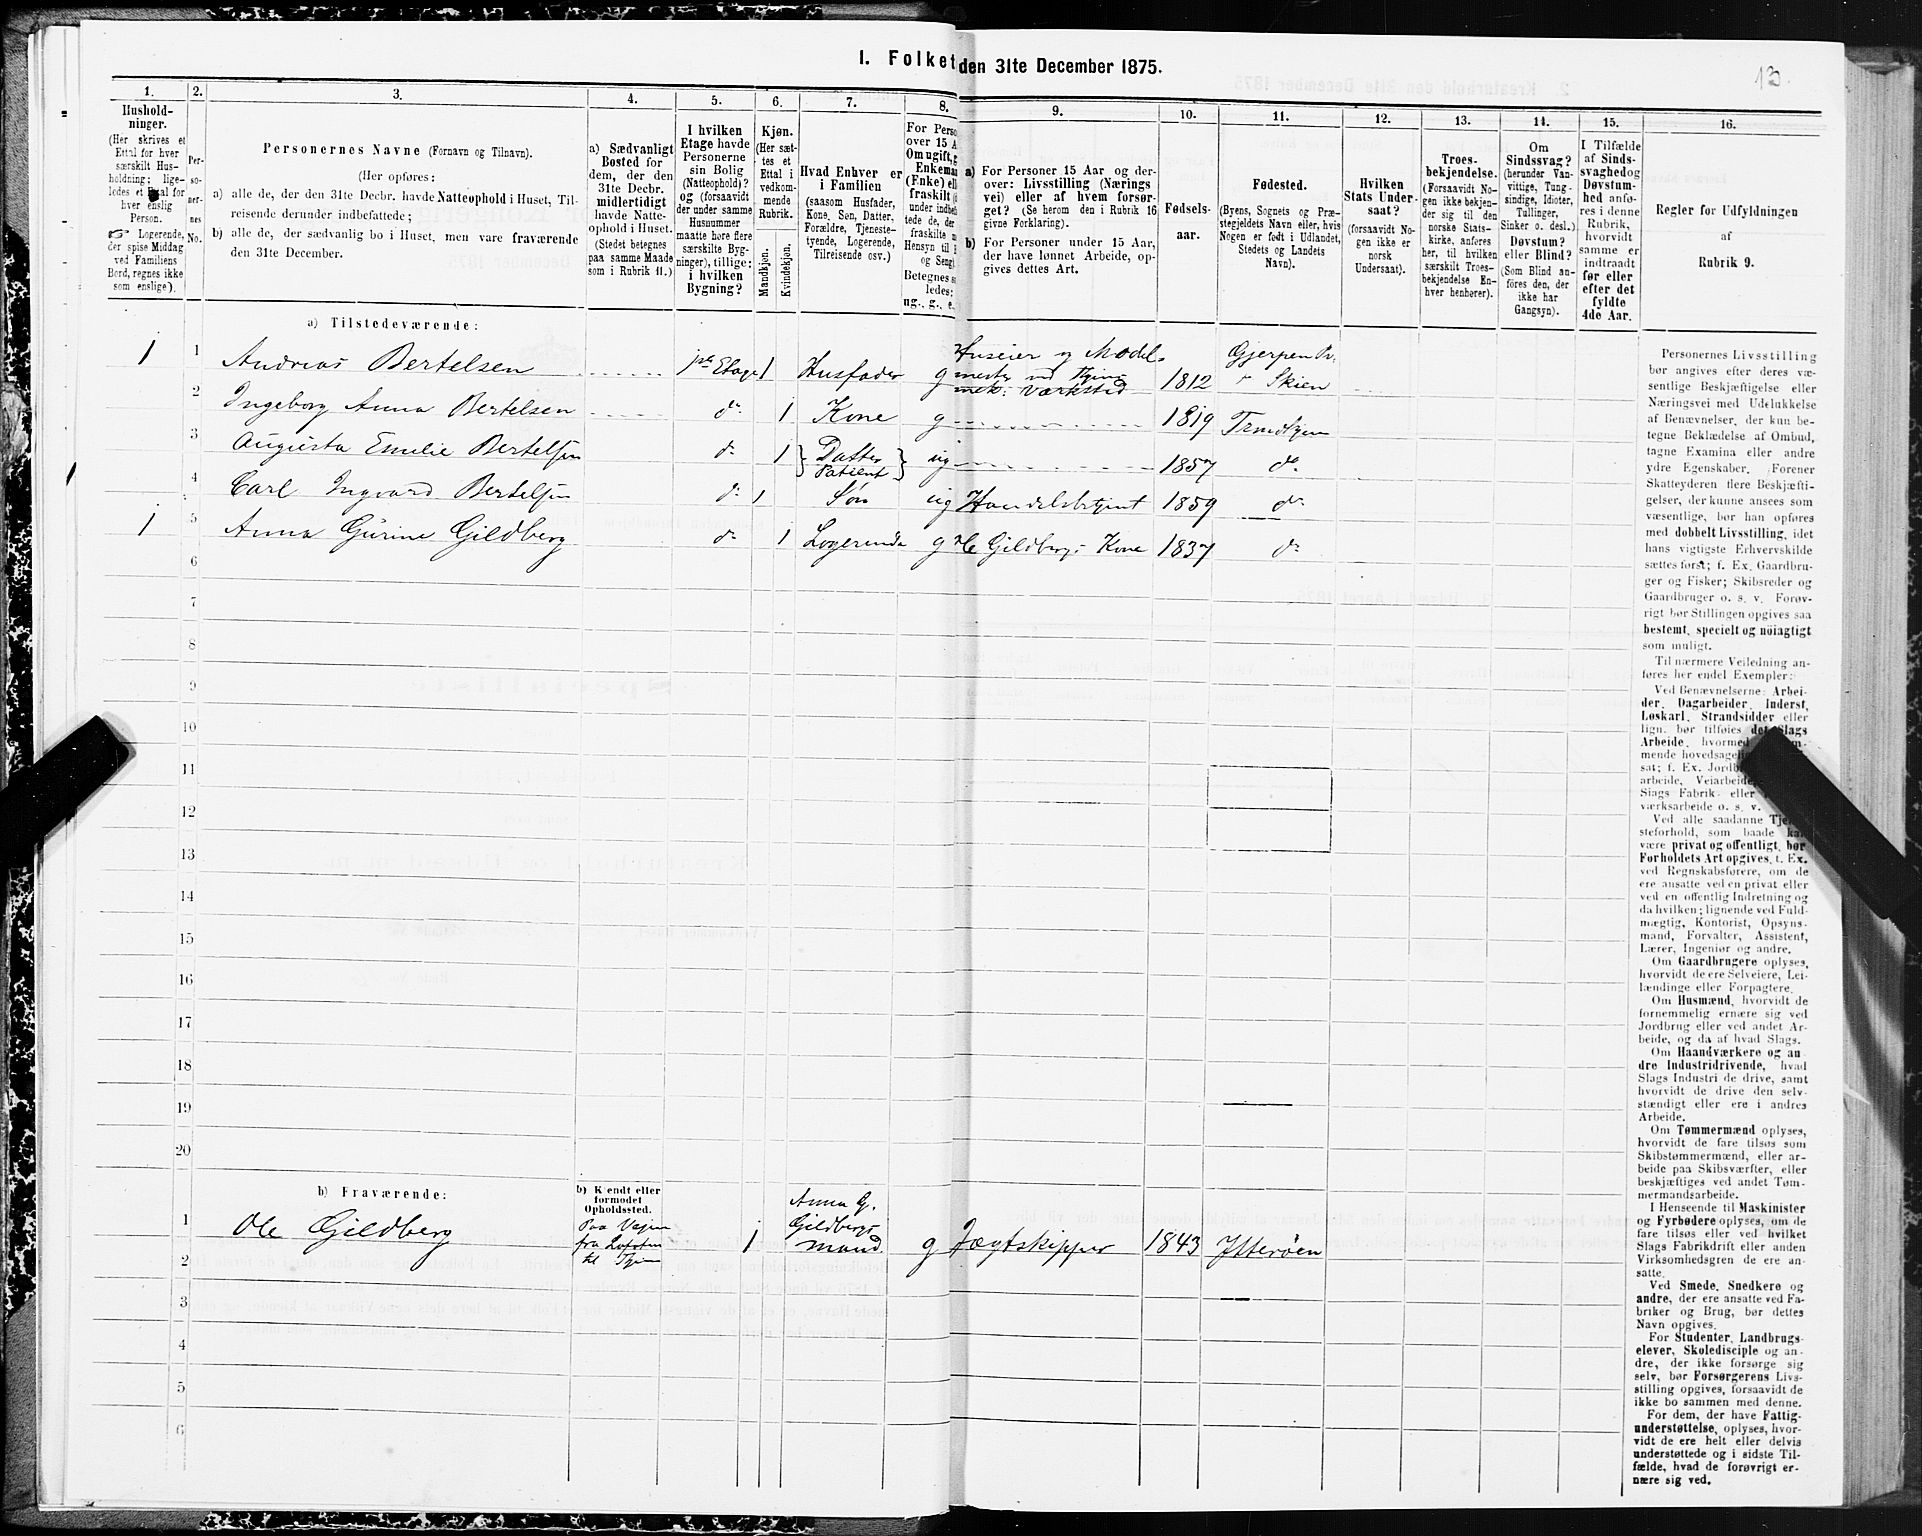 I. Folket den 31te December 1875.
13.
1.
Hushold-
ninger.
(Her skrives et
Ettal for hver
særskilt Hus-
holdning; lige-
ledes et Ettal for
hver enslig
Person.
☞ Logerende,
der spise Middag
ved Familiens
Bord, regnes ikke
som enslige).
2.
Per-
so-
ner-
nes
No.
3.
Personernes Navne (Fornavn og Tilnavn).
(Her opføres:
a) alle de, der den 31te Decbr. havde Natteophold i Huset, Til-
reisende derunder indbefattede;
b) alle de, der sædvanlig bo i Huset, men vare fraværende
den 31te December.
4.
a) Sædvanligt
Bosted for
dem, der den
31te Decbr.
midlertidigt
havde Natte-
ophold i Huset.
(Stedet betegnes
paa samme Maade
som i Rubrik 11.)
5.
I hvilken
Etage havde
Personerne
sin Bolig
(Natteophold)?
og (forsaavidt
der under samme
Husnummer
maatte høre flere
særskilte Byg-
ninger), tillige:
i hvilken
Bygning?
6.
Kjøn.
(Her sæt-
tes et
Ettal i
vedkom-
mende
Rubrik.)
Mandkjøn.
Kvindekjøn.
7.
Hvad Enhver er
i Familien
(saasom Husfader,
Kone, Søn, Datter,
Forældre, Tjeneste-
tyende, Logerende,
Tilreisende osv.)
8.
For Perso
over 15 A
Om ugift, g
Enkeman
(Enke) ell
fraskilt
under indbefa
tede de, der
fraskilte m
Hensyn til
og Seng
Betegnes s
ledes:
ug., g., e.
9.
a) For Personer 15 Aar og der-
over: Livsstilling (Nærings
vei) eller af hvem forsør-
get? (Se herom den i Rubrik 16
givne Forklaring).
b) For Personer under 15 Aar,
der have lønnet Arbeide, op-
gives dettes Art.
10.
Fødsels-
aar.
11.
Fødested.
(Byens, Sognets og Præ-
stegjeldets Navn eller, hvis
Nogen er født i Udlandet,
Stedets og Landets
Navn).
12.
Hvilken
Stats Under-
saat?
(forsaavidt No-
gen ikke er
norsk
Undersaat).
13.
Troes-
bekjendelse.
(Forsaavidt No-
gen ikke bekjen-
der sig til den
norske Stats-
kirke, anføres
her, til hvilken
særskilt Troes-
bekjendelse En-
hver henhører).
14.
Om
Sindssvag?
(herunder Van-
vittige, Tung-
sindige, Idioter,
Tullinger,
Sinker o. desl.)
Døvstum?
eller Blind?
(Som Blind an-
føres den, der
ikke har
Gangsyn).
15.
I Tilfælde
af Sinds-
svaghed og
Døvstum-
hed anfø-
res i denne
Rubrik,
hvorvidt
samme er
indtraadt
før eller
efter det
fyldte
4de Aar.
16.
Regler for Udfyldningen
af
Rubrik 9.
a) Tilstedeværende:
1 1 Andreas Bertelsen 1ste Etage 1 Husfader g Huseier og Model-
mester ved
mek: Værksted 1812 Gjerpen Pr.
v Skien
2 Ingeborg Anna Bertelsen do 1 Kone g 1819 Trondhjem
3 Augusta Emilie Bertelsen do 1 Datter
Patient ug 1857 do
4 Carl Ingvard Bertelsen do 1 Søn ug Handelsbetjent 1859 do
1 5 Anna Gurine Gildberg do 1 Logerende g Ole Gildbergs Kone 1837 do
6
7
8
9
10
11
12
13
14
15
16
17
18
19
20
b) Fraværende:
b) Kjendt eller
formodet
Opholdssted.
1 Ole Gildberg Paa Vejen
fra Lofoten
til 1 Anna G.
Gildbergs
mand g Jægtskipper 1843 Ytterøen
2
3
4
5
6
Personernes Livsstilling
bør angives efter deres væ-
sentlige Beskjæftigelse eller
Næringsvei med Udelukkelse
af Benævnelser, der kun be-
tegne Beklædelse af Ombud,
tagne Examina eller andre
ydre Egenskaber. Forener
Skatteyderen flere Beskjæfti-
gelser, der kunne ansees som
væsentlige, bør han opføres
med dobbelt Livsstilling, idet
hans vigtigste Erhvervskilde
sættes først; f. Ex. Gaardbru-
ger og Fisker; Skibsreder og
Gaardbruger o. s. v. Forøv-
rigt bør Stillingen opgives saa
bestemt, specielt og nøiagtigt
som muligt.
Til nærmere Veiledning an-
føres her endel Exempler:
Ved Benævnelserne: Arbei-
der, Dagarbeider, Inderst,
Løskarl, Strandsidder eller
lign. bør tilføies det Slags
Arbeide, hvormed
mende hovedsagelig
sat; f. Ex. Jordb
arbeide, Veiarbeide
Slags Fabrik- eller
værksarbeide o. s. v.
Ved alle saadanne Tje
steforhold, som baade ka
være privat og offentligt, bør
Forholdets Art opgives, t. Ex.
ved Regnskabsførere, om de
ere ansatte ved en privat eller
ved en offentlig Indretning og
da hvilken; lignende ved Fuld-
mægtig, Kontorist, Opsyns-
mand, Forvalter, Assistent,
Lærer, Ingeniør og andre.
Om Gaardbrugere oplyses,
hvorvidt de ere Selveiere, Lei-
lændinge eller Forpagtere.
Om Husmænd, hvorvidt de
fornemmelig ernære sig ved
Jordbrug eller ved andet Ar-
beide, og da af hvad Slags.
Om Haandværkere og an-
dre Industridrivende, hvad
Slags Industri de drive, samt
hvorvidt de drive den selv-
stændigt eller ere i andres
Arbeide.
Om Tømmermænd oplyses,
hvorvidt de fare tilsøs som
Skibstømmermænd, eller ar-
beide paa Skibsværfter, eller
beskjæftiges ved andet Tøm-
mermandsarbeide.
I Henseende til Maskinister
og Fyrbødere oplyses, om de
fare tilsøs eller ved hvilket
Slags Fabrikdrift eller anden
Virksomhedsgren de ere an-
satte.
Ved Smede, Snedkere og
andre, der ere ansatte ved Fa-
briker og Brug, bør dettes
Navn opgives.
For Studenter, Landbrugs-
elever, Skoledisciple og an-
dre, der ikke forsørge sig
selv, bør Forsørgerens Livs-
stilling opgives, forsaavidt de
ikke bo sammen med denne.
For dem, der have Fattig-
understøttelse, oplyses, hvor-
vidt de ere helt eller delvis
understøttede og i sidste Til-
fælde, hvad de forøvrigt er-
nære sig ved.